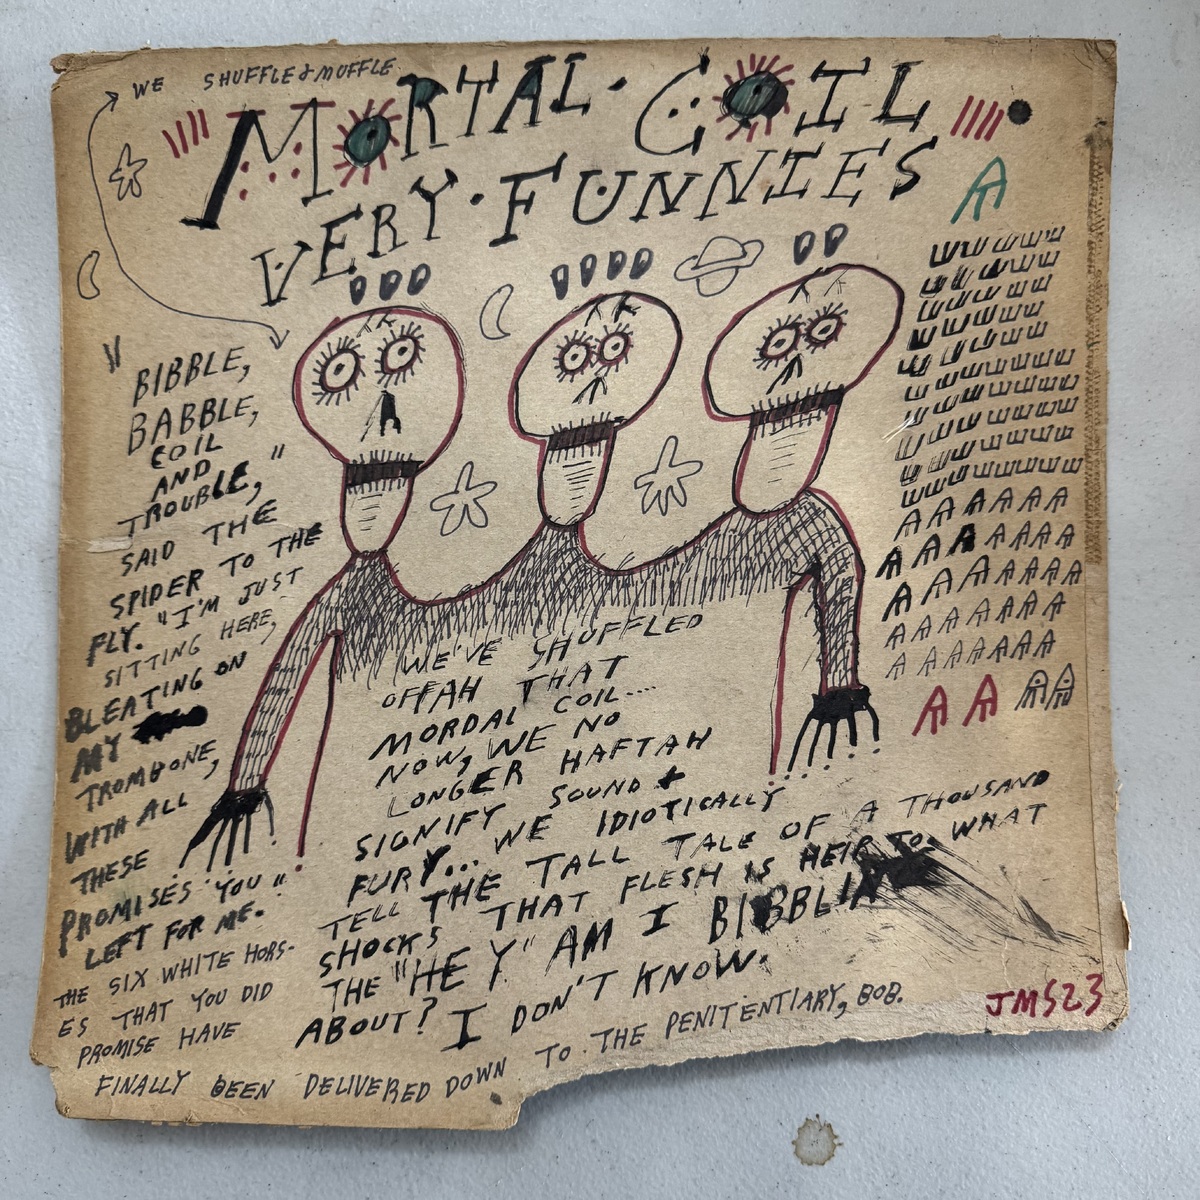 WE SHUFFLE & MUFFLE
MORTAL · COIL
VERY · FUNNIES
"BIBBLE,
BABBLE,
COIL
AND
TROUBLE,"
SAID THE
SPIDER TO THE
FLY. "I'M JUST
SITTING HERE,
BLEATING ON
MY
TROMBONE,
WITH ALL
THESE
PROMISES YOU
LEFT FOR ME."
THE SIX WHITE HORS-
ES THAT YOU DID
PROMISE HAVE
FINALLY BEEN DELIVERED DOWN TO THE PENITENTIARY, BOB.
WE'VE SHUFFLED
OFFAH THAT
MORDAL COIL....
NOW, WE NO
LONGER HAFTAH
SIGNIFY SOUND +
FURY... WE IDIOTICALLY
TELL THE TALL TALE OF A THOUSAND
SHOCKS THAT FLESH IS HEIR TO. WHAT
THE "HEY" AM I BIBBLIN'
ABOUT? I DON'T KNOW.
JMS23